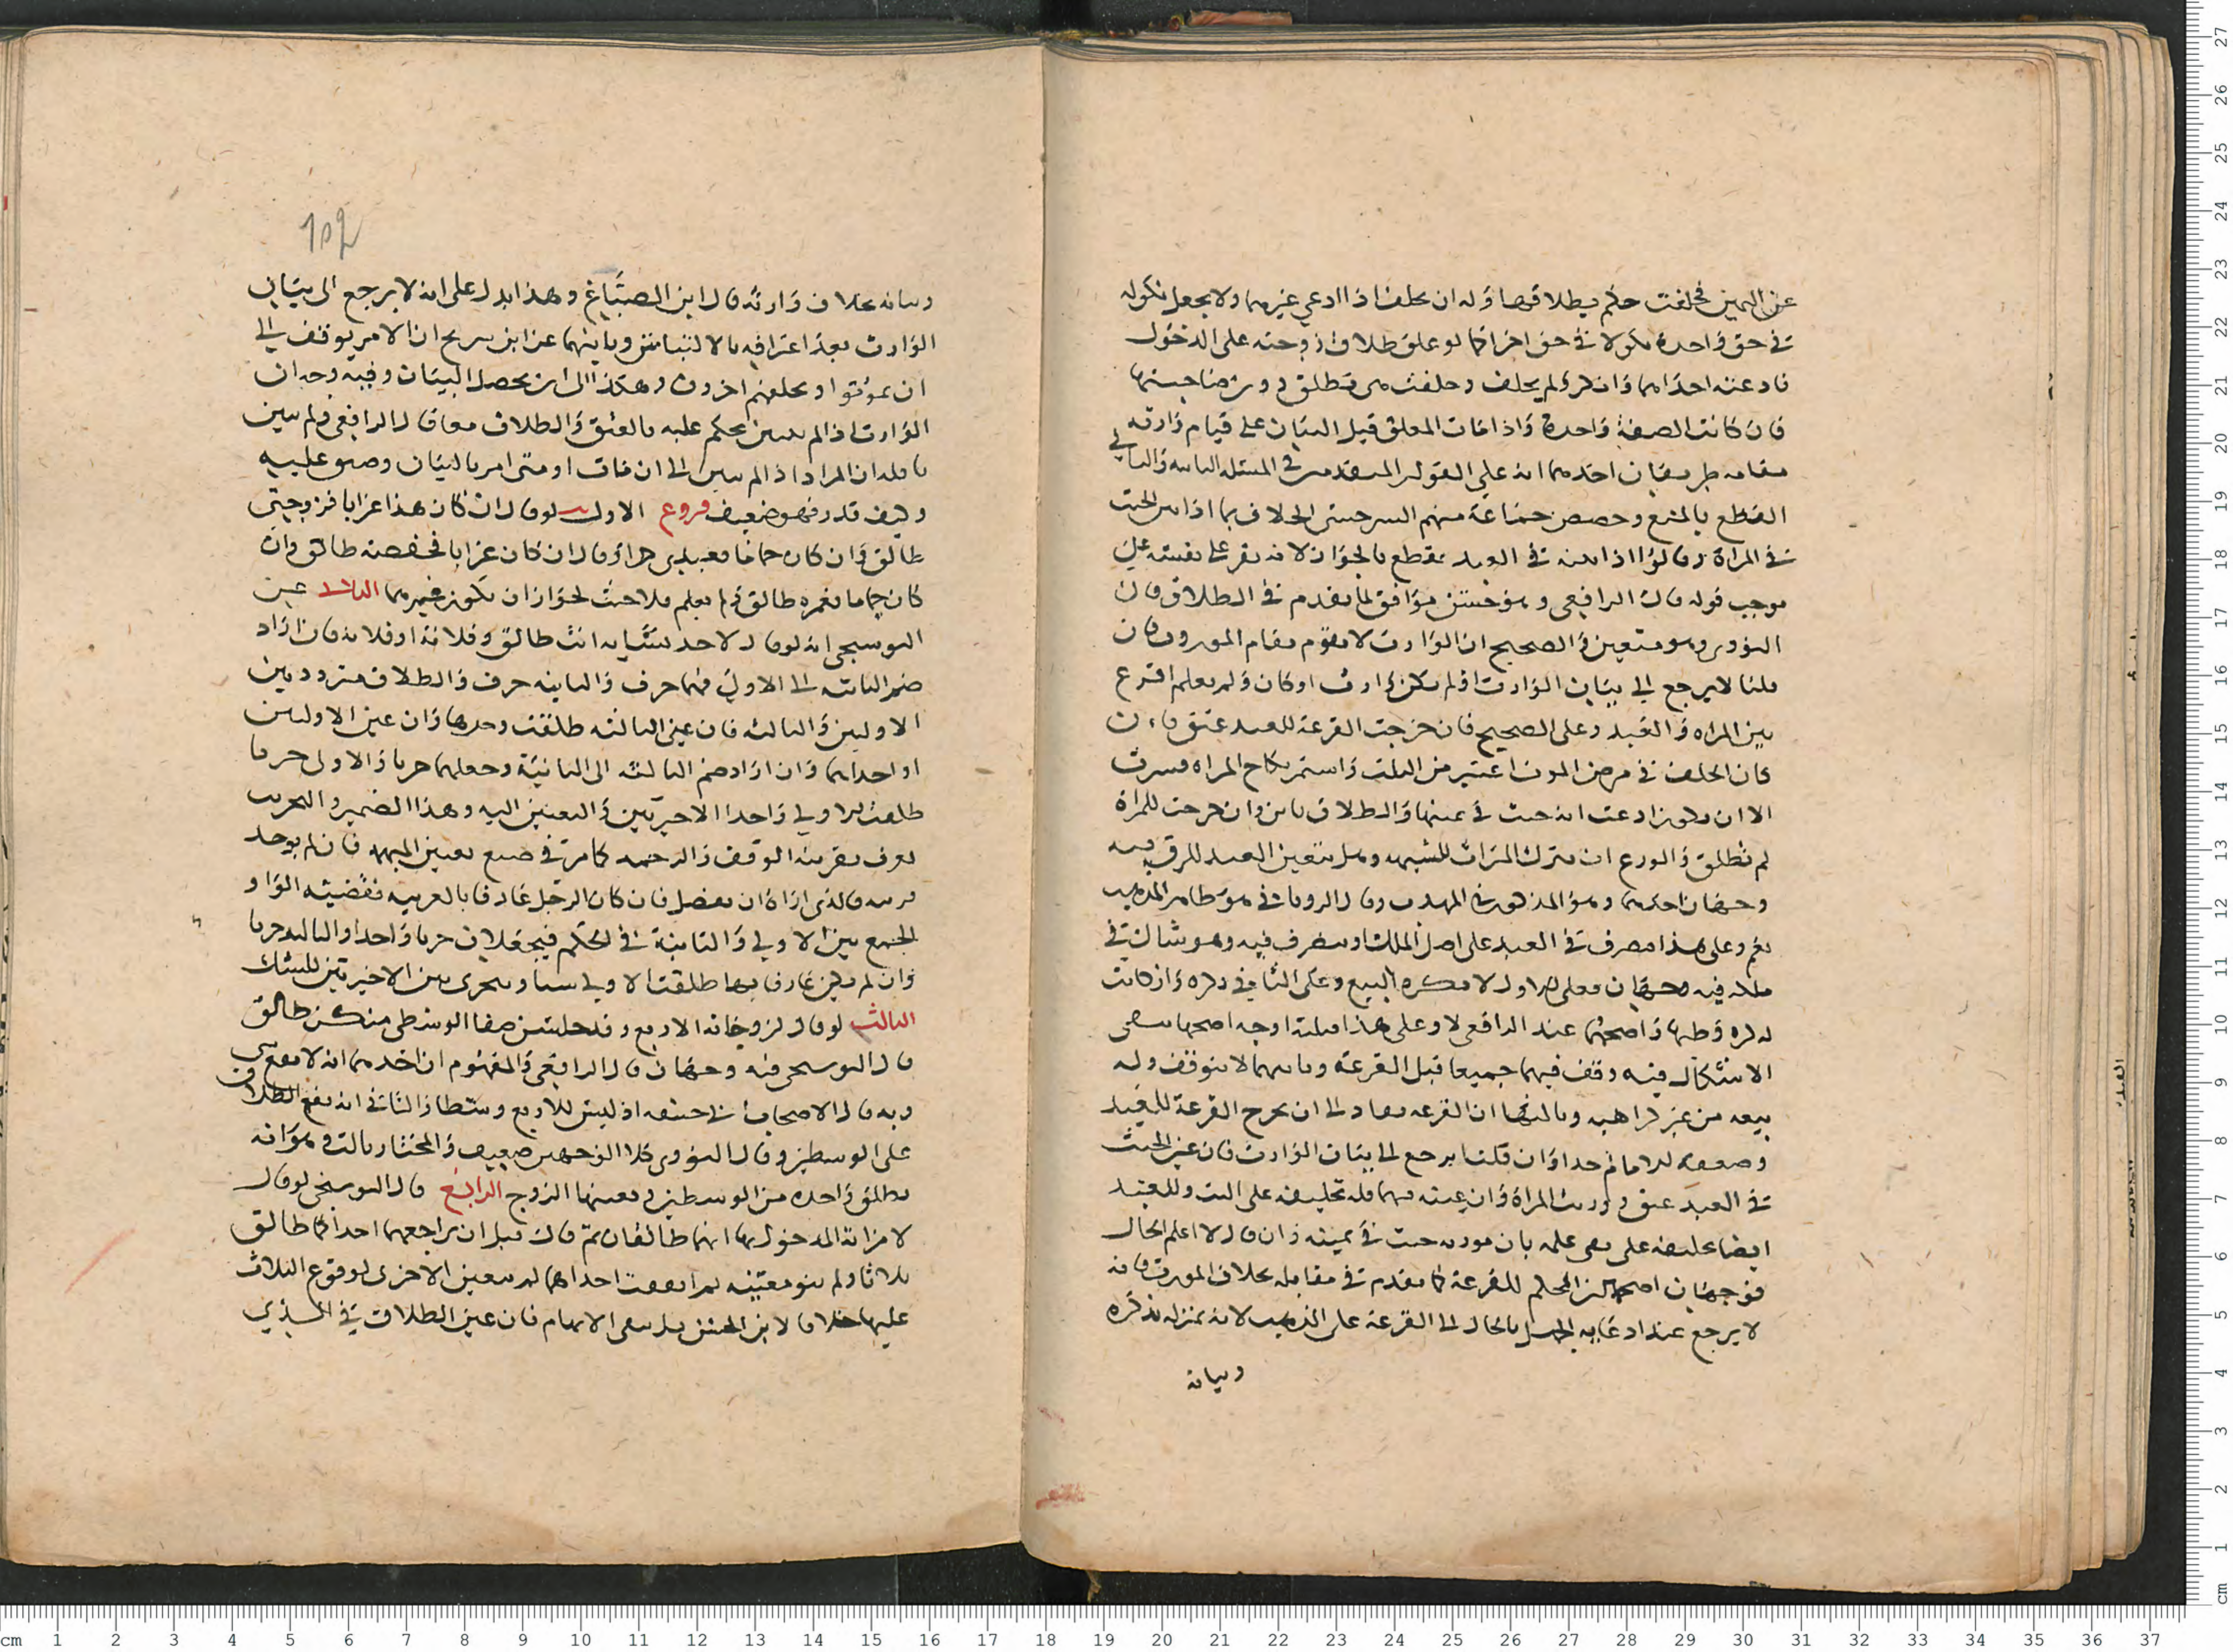 عن اليمين فحلفت حكم بطلاقها وله ان يحلف اذا ادعي غيرهما ولا يجعل نكوله
في حق واحدة نكولا في حق اخرا كما لو علق طلاق زوجته على الدخول
فادعته احداهما وانكر ولم يحلف وحلفت هي تطلق دون صاحبتها
فان كانت الصفة واحدة واذا مات المعلق قبل البيان على قيام وارثه
مقامه طريقان احدهما انه على القول المتقدم في المسئلة الثانية والثاني
القطع بالمنع وخصص جماعة منهم السرخسي الخلاف بما اذا بين الحنث
في المراة وقالوا اذا بينه في العبد نقطع بالجواز لانه يقر على نفسه على
موجب قوله قال الرافعي وهو حسن موافق لما تقدم في الطلاق قال
النووي وهو متعين والصحيح ان الوارث لا يقوم مقام المورث فان
قلنا لا يرجع الى بيان الوارث اولم يكن وارث او كان ولم يعلم اقرع
بين المراه والعبد وعلى الصحيح فان خرجت القرعة للعبد عتق فان
كان الحلف في مرض الموت اعتبر من الثلث واستمر نكاح المراه فترث
الا ان تكون ادعت انه حنث في يمينها والطلاق باين وان خرجت للمراة
لم تطلق والورع ان تترك الميراث للشبهه وهل يتعين العبد للرق فيه
وجهان احدهما وهو المذكور في المهذب وقال الروياني هو ظاهر المذهب
نعم وعلى هذا يتصرف في العبد على اصل الملك او يتصرف فيه وهو شاك في
ملكه فيه وجهان فعلى الاول لا يكره البيع وعلى الثاني يكره وان كانت
له كره وطيها واصحهما عند الرافعي لا وعلى هذا اقبلته اوجه اصحها يبقى
الاشكال فيه وقف فيهما جميعا قبل القرعة وثانيهما لا يتوقف وله
بيعه من غير كراهيه وثالثها ان القرعه تعاد الى ان تخرج القرعة للعبد
وضعفه الامام جدا وان قلنا يرجع الى بيان الوارث فان عين الحنث
في العبد عتق وورثت المراة وان عينه فيها فله تحليفه على البت وللعبد
ايضا تحليفه على نفي علمه بان مورثه حنث في يمينه وان قال لا اعلم الحال
فوجهان اصحهما التحكم للقرعة كما تقدم في مقابله بخلاف المورث فانه
لا يرجع عند ادعايه الجهل بالحال الى القرعة على المذهب لانه بمنزله تذكره
وبيانه
102
وبيانه بخلاف وارثه قال ابن الصباغ وهذا يدل على انه لا يرجع الى بيان
الوارث بعد اعترافه بالالتباس وثانيهما عن ابن سريج ان الامر يوقف الى
ان يموتوا او يخلفهم اخرون وهكذا الى ان يحصل البيان وفيه وجه ان
الوارث اذا لم يبين يحكم عليه بالعتق والطلاق معا قال الرافعي ولم يبين
قايله ان المراد اذا لم يبين الى ان مات او متى امر بالبيان وضيق عليه
وكيف قدر فهو ضعيف فروع الاول لو قال ان كان هذا غرابا فزوجتي
طالق وان كان حماما فعبدي حر او قال ان كان غرابا فحفصه طالق وان
كان حماما فعمره طالق ولم يعلم فلا حنث لجواز ان يكون غيرهما الثاني عين
البوسنجي انه لو قال لاحد نسايه انت طالق وفلانة او فلانه فان اراد
ضم الثانيه الى الاولى فهما حزب والثالثه حزب والطلاق متردد بين
الاوليين والثالثه فان عين الثالثه طلقت وحدها وان عين الاوليين
او احداهما وان اراد ضم الثالثه الى الثانية وجعلهما حزبا والاولى حزبا
طلقت الاولى واحدا الاخيرتين والتعيين اليه وهذا الضمير والتحزيب
يعرف بقرينه الوقف والرحمه كما مر في صيغ تعيين المبهم فان لم يوجد
قرينه قال الذي اراه ان يفصل فان كان الرجل عارفا بالعربيه فقضيته الواو
الجمع بين الاولى والثانية في الحكم فيجعلان حزبا واحدا والثالثه حزبا
وان لم يكن عارفا بها طلقت الاولى يقينا ويتخير بين الاخيرتين للشك
الثالث لو قال لزوجاته الاربع وقد جلسن صفا الوسطى منكن طالق
قال البوسنجي فيه وجهان قال الرافعي والمفهوم ان احدهما انه لا يقع شي
وبه قال الاصحاب اذ ليس للاربع وسط والثاني انه يقع الطلاق
على الوسطين وقال النووي كلا الوجهين ضعيف والمختار ثالث وهو انه
يطلق واحده من الوسطين ويعينها الزوج الرابع قال البوسنجي لو قال
لامراته المدخول بهما انتما طالقان ثم قال قبل ان يراجعهما احداكما طالق
ثلاثا ولم ينو معينه ثم انقضت احداهما لم يتعين الاخرى لوقوع الثلاث
عليها خلافا لابن الحسن بل يبقى الابهام فان عين الطلاق في الذي